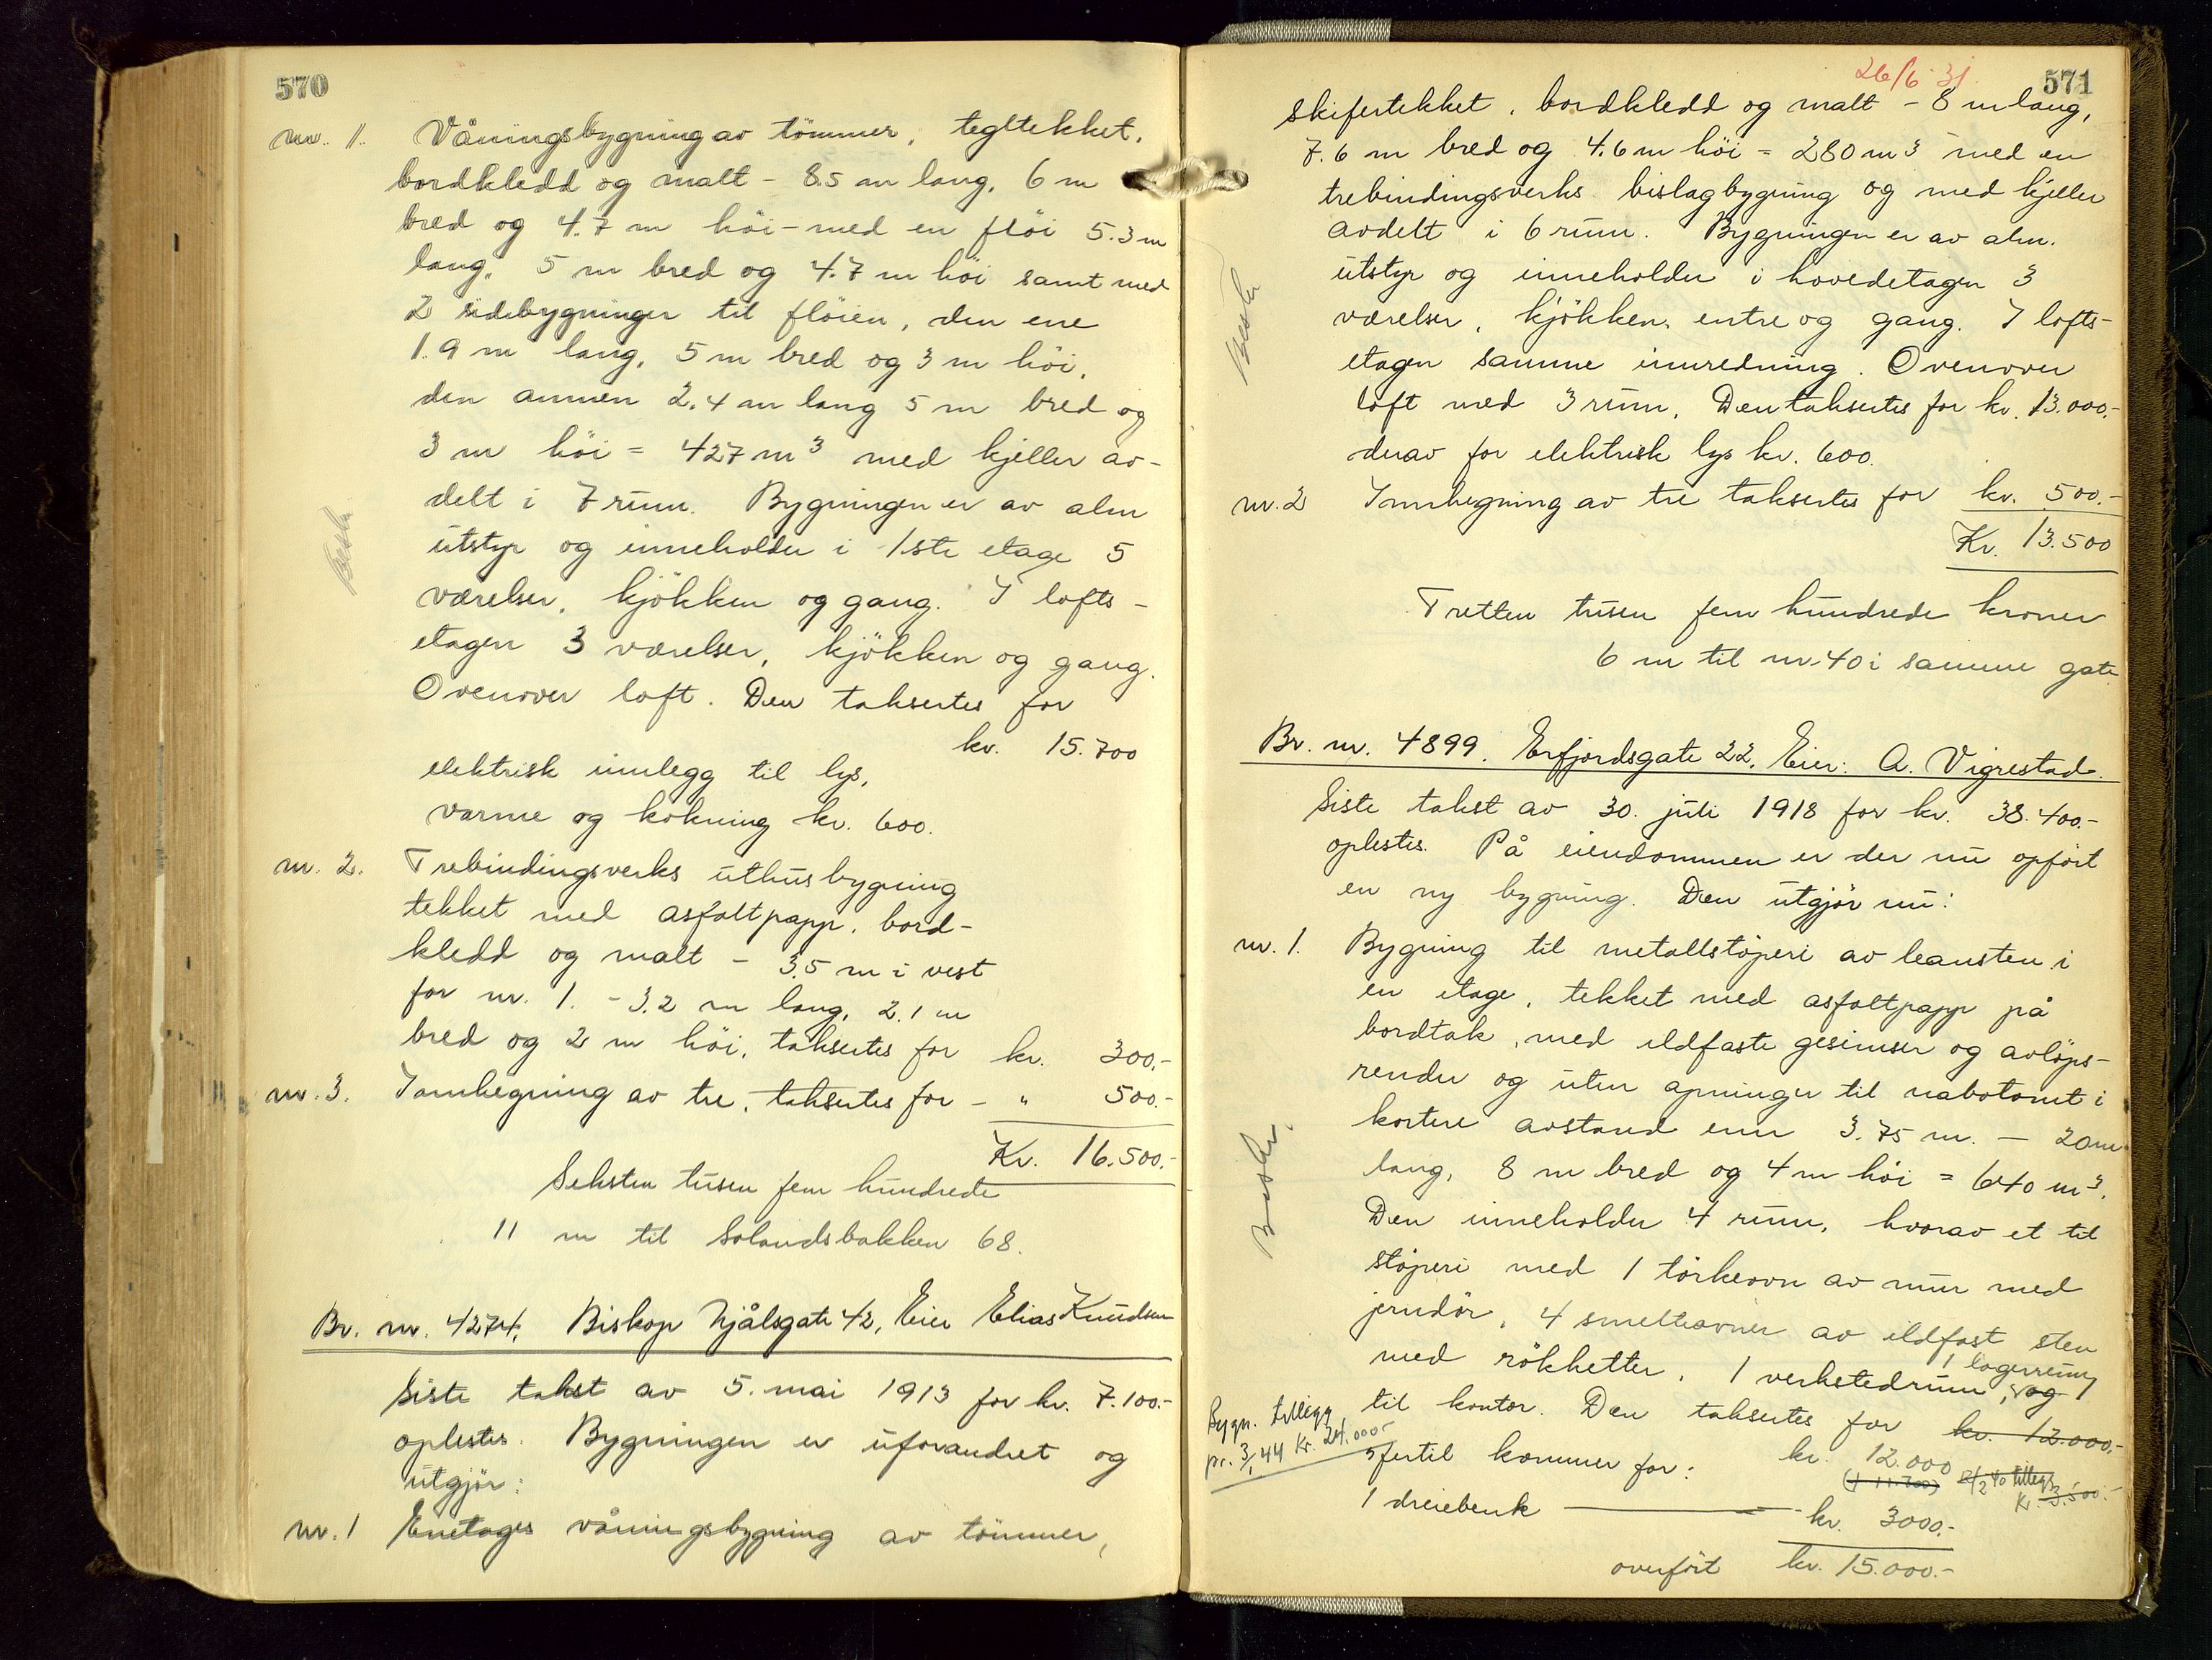 570
nr. 1. Våningsbygning av tömmer, tegltekket,
bordkledd og malt - 8.5 m lang, 6 m
bred og 4.7 m höi - med en flöi 5.3 m
lang, 5 m bred og 4.7 m höi samt med
2 sidebygninger til flöien, den ene
1.9 m lang, 5 m bred og 3 m höi,
den annen 2.4 m lang 5 m bred og
3 m höi = 427 m³ med kjeller av-
delt i 7 rum. Bygningen er av alm
utstyr og inneholder i 1ste etage 5
værelser, kjökken og gang. I lofts-
etagen 3 værelser, kjökken og gang.
Ovenover loft. Den taksertes for
kr. 15.700
elektrisk innlegg til lys,
varme og kokning kr. 600.
nr. 2. Trebindingsverks uthusbygning
tekket med asfaltpapp, bord-
kledd og malt - 3.5 m i vest
for nr. 1. - 3.2 m lang, 2.1 m
bred og 2 m höi, taksertes for kr. 300.-
nr. 3. Innhegning av tre, taksertes for - " 500.-
Kr. 16.500.-
Seksten tusen fem hundrede
11 m til Solandsbakken 68.
Br. nr. 4274, Biskop Njålsgate 42, Eier Elias Knudsen
Siste takst av 5. mai 1913 for kr. 7.100.-
oplestes. Bygningen er uforandret og
utgjör:
nr. 1 Enetages våningsbygning av tömmer,
26/6 31
571
skifertekket, bordkledd og malt - 8 m lang,
7.6 m bred og 4.6 m höi = 280 m³ med en
trebindingsverks bislagbygning og med kjeller
avdelt i 6 rum. Bygningen er av alm.
utstyr og inneholder i hovedetagen 3
værelser, kjökken, entre og gang. I lofts-
etagen samme innredning. Ovenover
loft med 3 rum. Den taksertes for kr. 13.000.-
derav for elektrisk lys kr. 600.
nr. 2 Innhegning av tre taksertes for kr. 500.-
Kr. 13.500
Tretten tusen fem hundrede kroner
6 m til nr. 40 i samme gate.
Br. nr. 4899. Erfjordsgate 22, Eier: A. Vigrestad.
Siste takst av 30. juli 1918 for kr. 38.400.-
oplestes. På eiendommen er der nu opfört
en ny bygning. Den utgjör nu:
nr. 1. Bygning til metallstöperi av leansten i
en etage, tekket med asfaltpapp på
bordtak, med ildfaste gesimser og avlöps-
render og uten apninger til nabotomt i
kortere avstand enn 3.75 m. - 20 m
lang, 8 m bred og 4 m höi = 640 m³.
Den inneholder 4 rum, hvorav et til
stöperi med 1 törkeovn av mur med
jerndör, 4 smelteovner av ildfast sten
med rökhetter, 1 verkstedrum, 1 lagerrum og 1
til kontor. Den taksertes for kr. 12.000.-
Bygn. tillegg
pr. 3/1 44 Kr. 24.000.-
kr. 12.000
2/2 40 tillegg
Kr. 3.500.-
hertil kommer for:
1 dreiebenk kr. 3000.-
overfört kr. 15.000.-